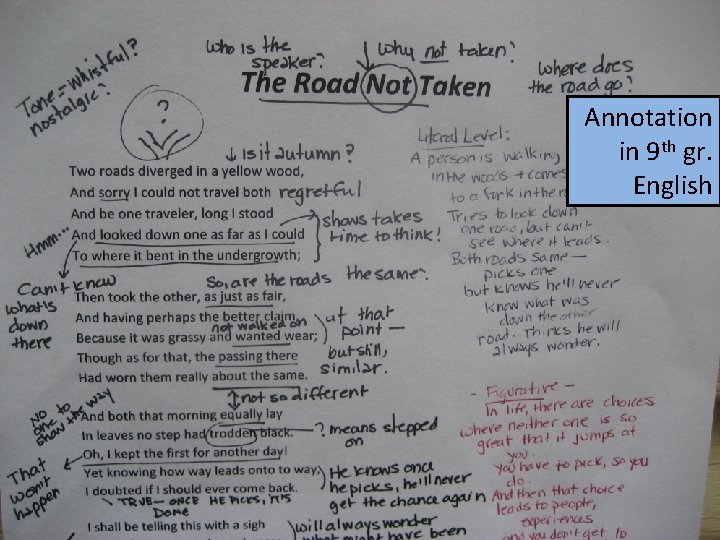 Tone = whistful?
nostalgic?
who is the
speaker?
Why not taken?
where does
the road go?
The Road Not Taken
Annotation
in 9th gr.
English
?
↓ Is it autumn?
Literal Level:
A person is walking
in the woods + comes
to a fork in the
Tries to look down
one road, but can't
see where it leads.
Both roads same –
picks one
but knows he'll never
know what was
down the other
road. Thinks he will
always wonder.
Two roads diverged in a yellow wood,
And sorry I could not travel both
regretful
And be one traveler, long I stood
And looked down one as far as I could
To where it bent in the undergrowth;
shows takes
time to think!
Hmm...
Can't know
what is
down
there
So, are the roads the same?
Then took the other, as just as fair,
And having perhaps the better claim
not walked on
Because it was grassy and wanted wear;
Though as for that, the passing there
Had worn them really about the same.
at that
point –
but still,
similar.
not so different
No
one to
show the way
And both that morning equally lay
In leaves no step had trodden black.
? means stepped
on
Oh, I kept the first for another day!
Yet knowing how way leads onto way,
I doubted if I should ever come back.
That
won't
happen
He knows once
he picks, he'll never
get the chance again
TRUE – ONCE HE PICKS, IT'S
DONE
I shall be telling this with a sigh
will always wonder
what might have been
- Figurative -
In life, there are choices
where neither one is so
great that it jumps at
you.
You have to pick, so you
do.
And then that choice
leads to people,
experiences
and you don't get to